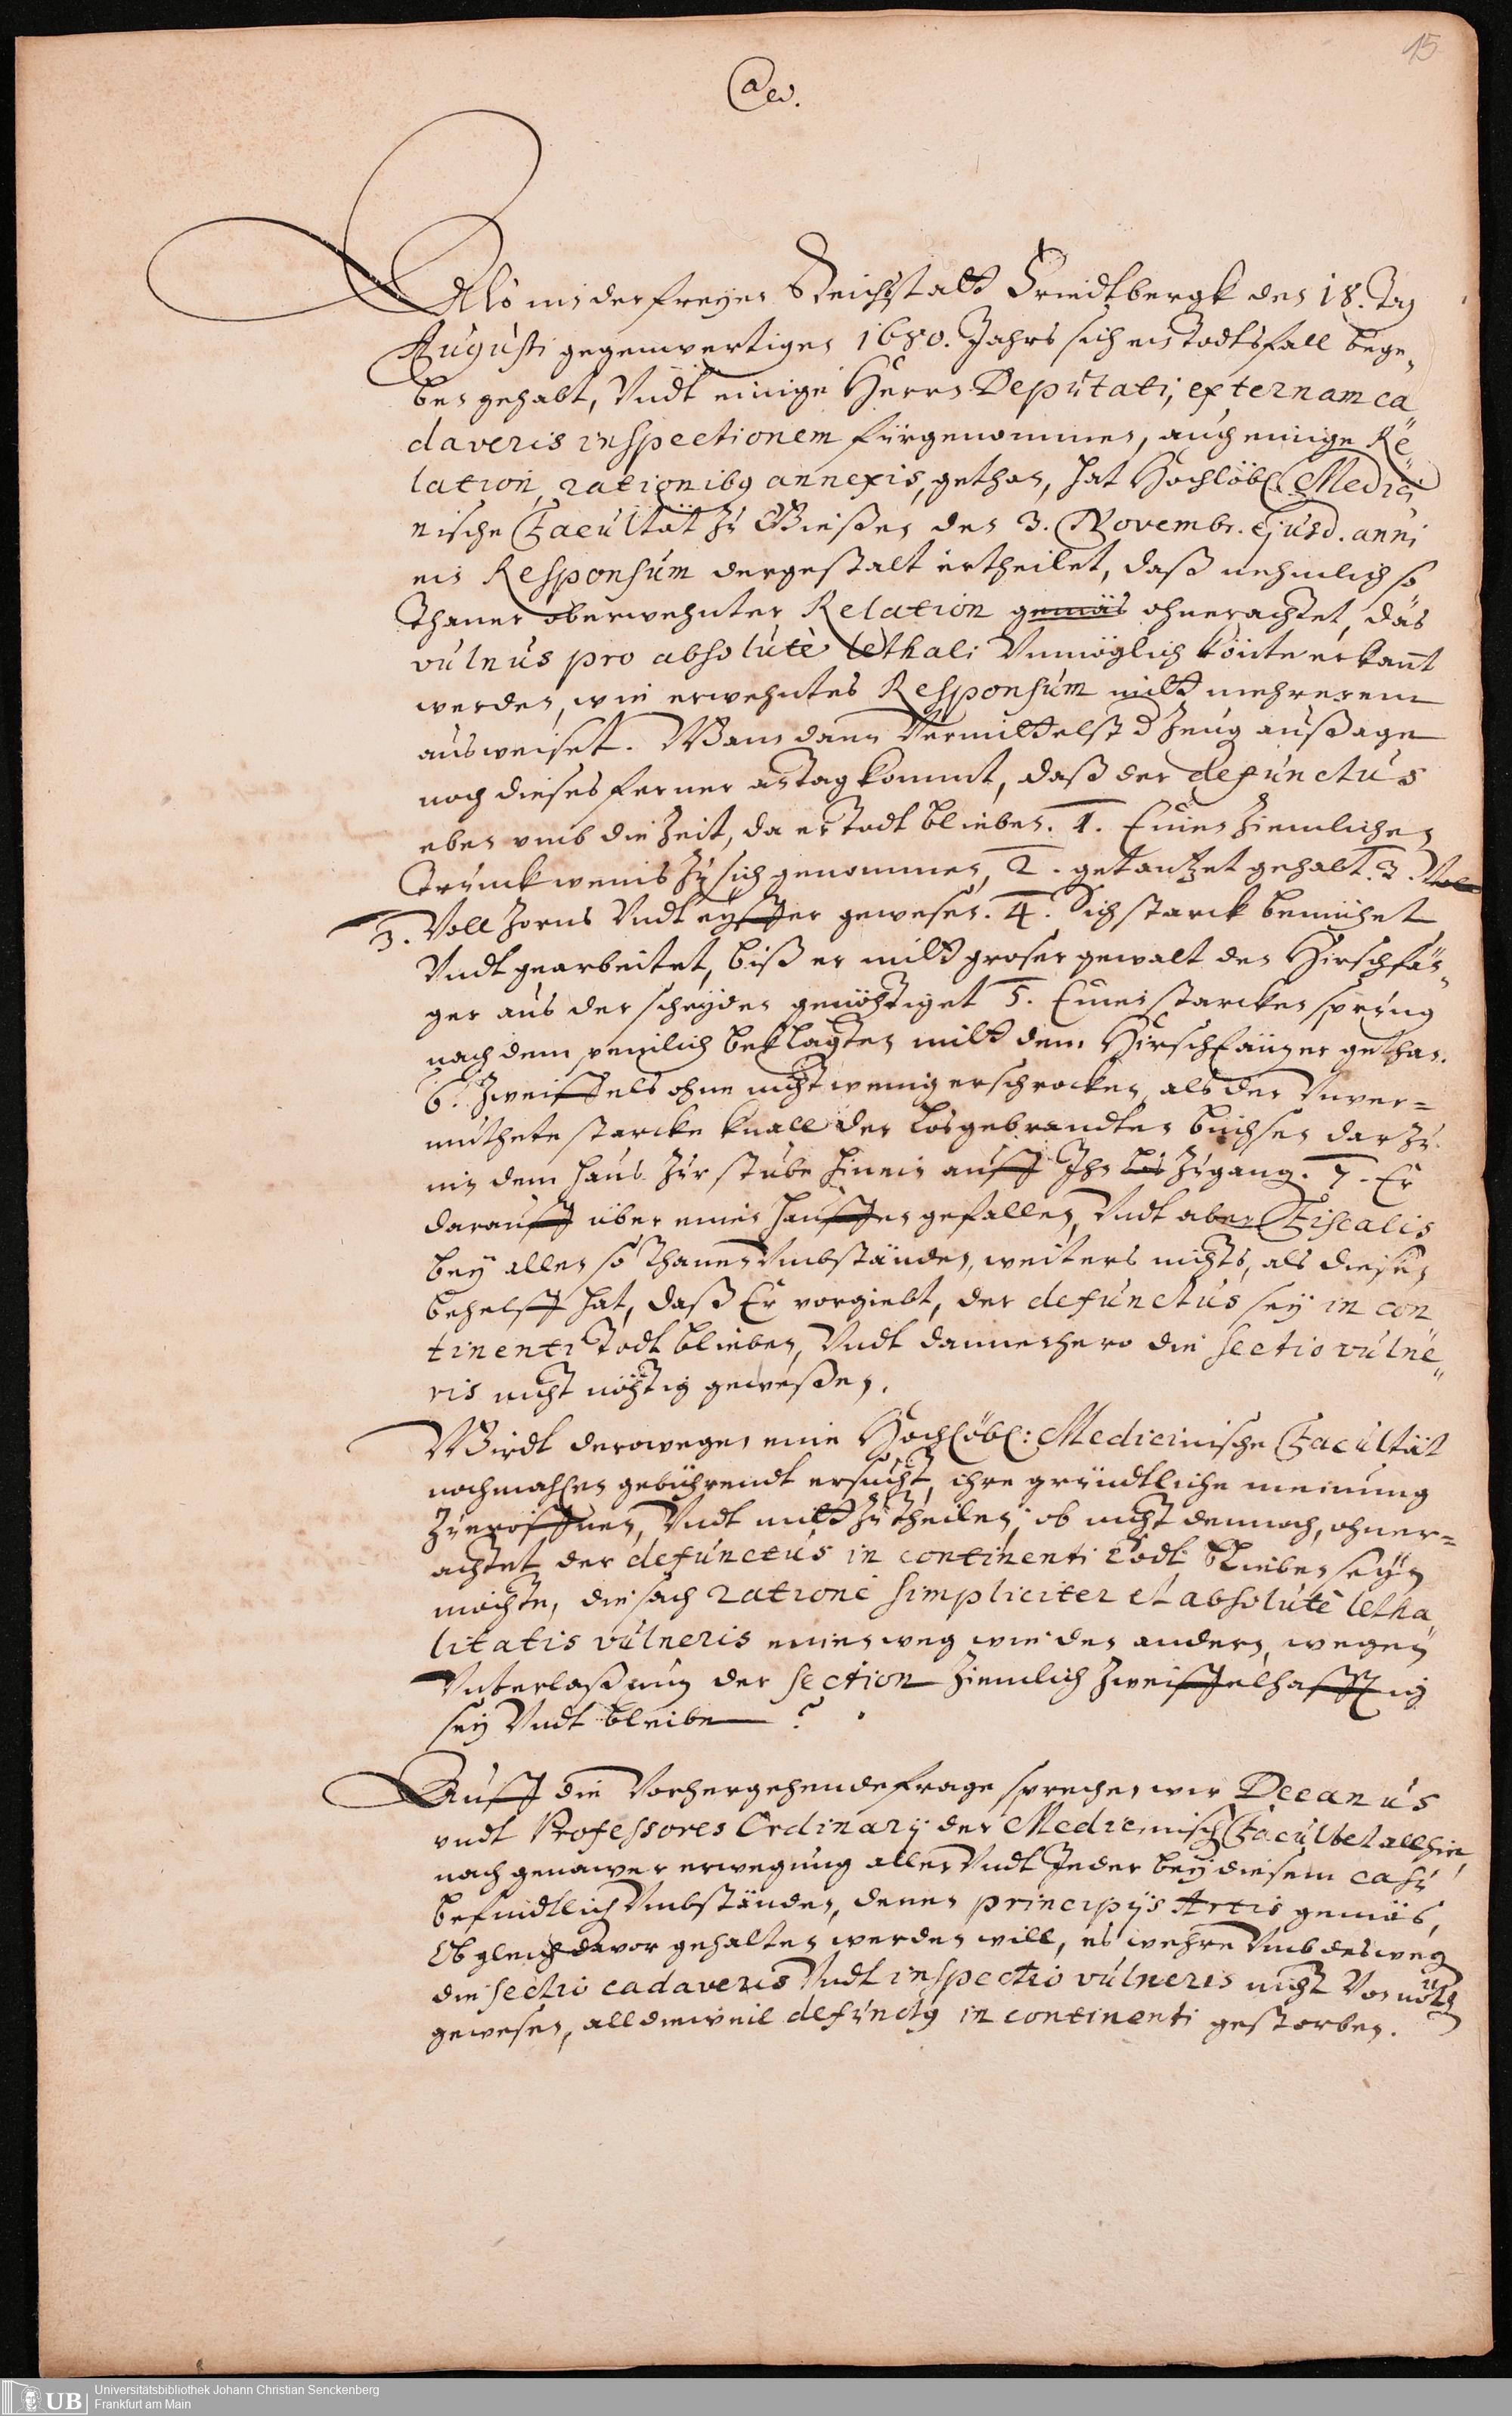 15
Als in der freyen Reichstatt Friedtbergk den 18. Tag
Augusti gegenwertigen 1680. Jahrs sich ein todtsfall bege„
ben gehabt, Undt einige Herrn Deputati, externam ca„
daveris inspectionem fürgenommen, auch einige Re„
lation, rationibq annexis, gethan, hat Hochlöbl. Medici
nische Facultät zu Gießen den 3. Novembr. ejusd. anni
ein Responsum dergestalt ertheilet, daß nehmlich so
thaner oberwehnter Relation gemäs ohnerachtet, das
vulnus pro absolutè lethali Unmöglich könte erkant
werden, wie erwehntes Responsum mitt mehrerem
ausweiset. Wann dann Vermittelst d Zeug außage
noch dieses ferner an tag kommt, daß der defunctus
eben umb die Zeit, da er todt blieben. 1. Einen ziemlichen
Trunck weins zu sich genommen, 2. getantzet gehabt. 3. Voll
3. Voll Zorns Undt eyffer gewesen. 4. Sich starck bemühet
Undt gearbeitet, biß er mitt groser gewalt den Hirschfän„
ger aus der scheyden genöhtiget 5. Einen starcken sprung
nach dem peinlich beklagten mitt dem Hirschfänger gethan.
6. Zweiffels ohne nicht wenig erschrocken, als der Unver=
muthete starcke knall der losgebrandten büchsen darzu
in dem haus zur stube hinein auff Ihn los zugang. 7. Er
darauff über einen hauffen gefallen, Undt aber Fiscalis
bey allen so thanen Umbständen, weiters nichts, als diesen
behelff hat, daß Er vorgiebt, der defunctus sey in con
tinenti todt blieben, Undt dannenhero die sectio vulne„
ris nicht nöhtig geweßen.
Wirdt derowegen eine Hochlöbl: Medicinische Facultät
nochmahlen gebührendt ersucht, ihre gründtliche meinung
zu eröffnen, Undt mitt zu theilen, ob nicht dennoch, ohner=
achtet der defunctus in continenti todt blieben seyn
möchte, die sach ratione simpliciter et absolutè letha
litatis vulneris einen weg wie den andern, wegen
Unterlaßung der section ziemlich zweiffelhafftig
sey Undt bleibe?
Auff die Vorhergehende frage sprechen wir Decanus
undt Professores Ordinarij der Medicinisch Facultet allhie,
nach genawer erwegung aller Undt Jeder bey diesem casu
befindtlich Umbständen, denen principijs Artis gemäs,
Ob gleich davor gehalten werden will, es wehre Umb desweg
die sectio cadaveris Undt inspectio vulneris nicht Von nöth
gewesen, all dieweil defunctq in continenti gestorben.
UB
Universitätsbibliothek Johann Christian Senckenberg
Frankfurt am Main